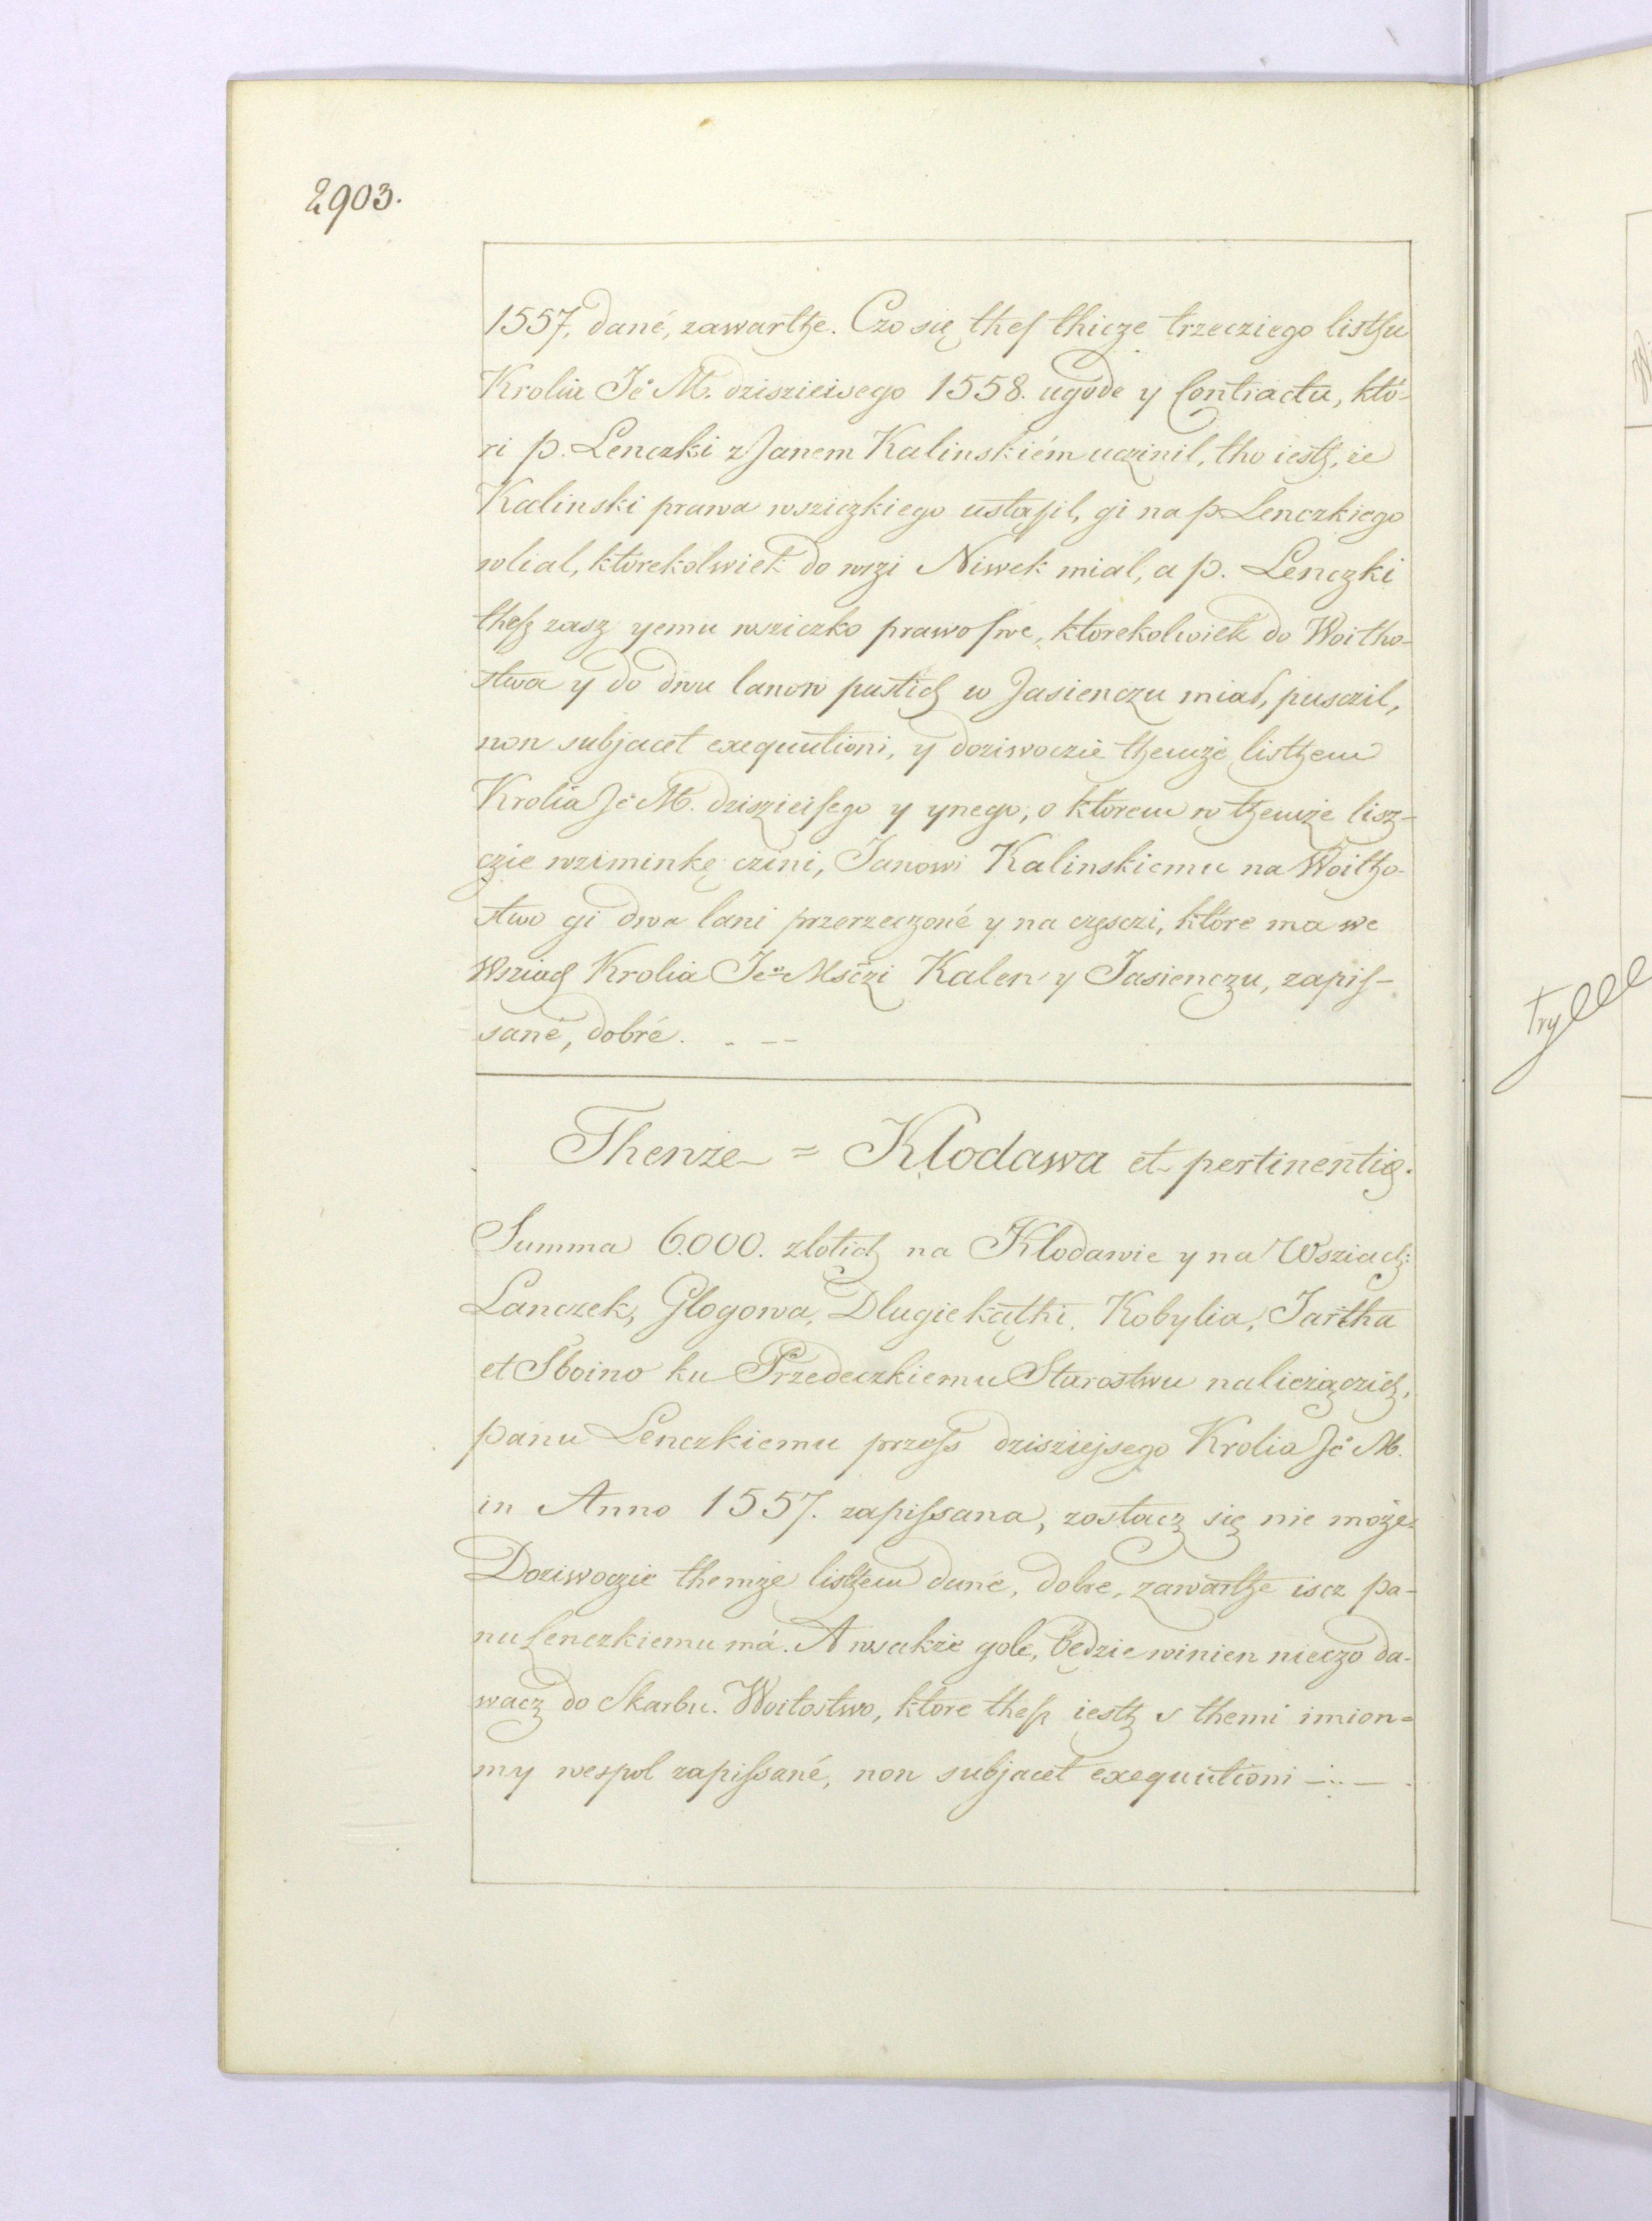 2903.
1557. dané, zawarthe. Czo się thesz thicze trzecziego listhu
Krolia Jé M. dzisieisego 1558. ugode y Contractu, któ-
ri p. Lenczki z Janem Kalinskiém uczinil, tho iesth, że
Kalinski prawa wsziczkiego ustąpil, gi na p. Lenczkiego
wlial, którekolwiek do wszi Niwek mial, a p. Lenczki
thesz zasz yemu wsziczko prawo swe, ktorekolwiek do Woitho-
stwa y do dwu lanow pustich w Jasienczu miał, pusczil,
non subjacet exequutioni, y dożiwoczie themże listhem
Krolia Jé M. dzisziejsego y ynego, o ktorem w themże lisz-
czie wzminkę czini, Janowi Kalinskiemu na Woitho-
stwo gi dwa lani przerzeczoné y na częsczi, które ma we
Wsziach Krolia Jé Msczi Kalen y Jasienczu, zapis-
sané, dobré.
Thenże = Kłodawa et pertinentię.
Summa 6.000. zlotich na Klodawie y na Wsziach:
Lanczek, Glogowa, Dlugie kąthi, Kobylia, Jartha
et Sboino ku Przedeczkiemu Starostwu należączich,
panu Lenczkiemu przess dzisziejsego Krolia Jé M.
in Anno 1557. zapissana, zostacz się nie może.
Dożiwoczie themże listhem dané, dobre, zawarthe iscz pa-
nu Lenczkiemu má. A wsakże gole, będzie winien nieczo da-
wacz do Skarbu. Woitostwo, ktore thesz iesth s themi imion-
my wespol zapissané, non subjacet exequutioni